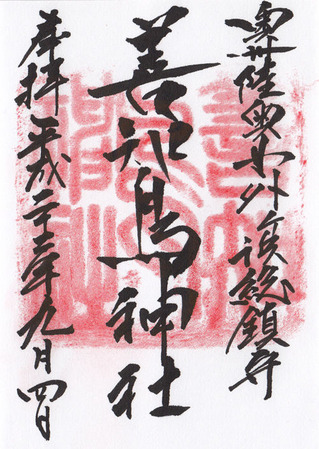 奥州陸奥外ヶ浜総鎮守
善知鳥神社
奉拝 平成二十三年九月四日